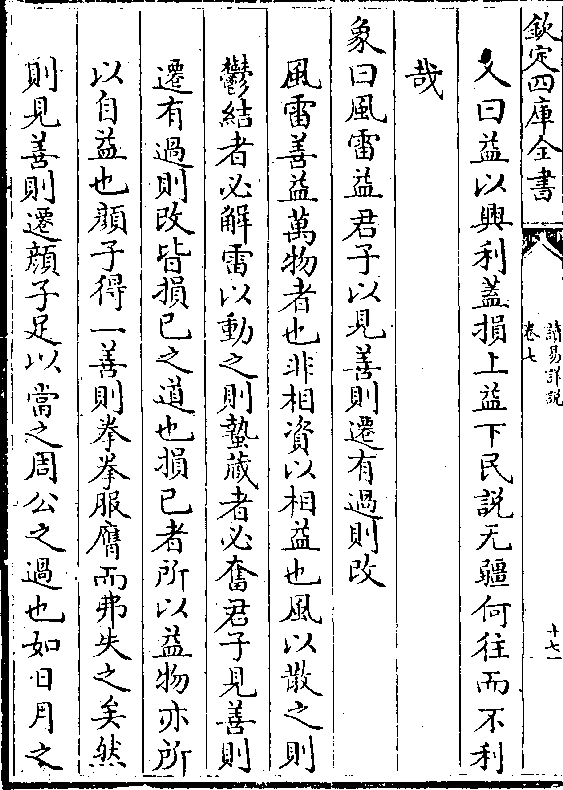 欽定四庫全書
讀易詳說
卷七
十七
又曰益以興利蓋損上益下民説无疆何往而不利
哉
象曰風雷益君子以見善則遷有過則改
風雷善益萬物者也非相資以相益也風以散之則
鬱結者必解雷以動之則蟄藏者必奮君子見善則
遷有過則改皆損已之道也損已者所以益物亦所
以自益也顔子得一善則拳拳服膺而弗失之矣然
則見善則遷顔子足以當之周公之過也如日月之